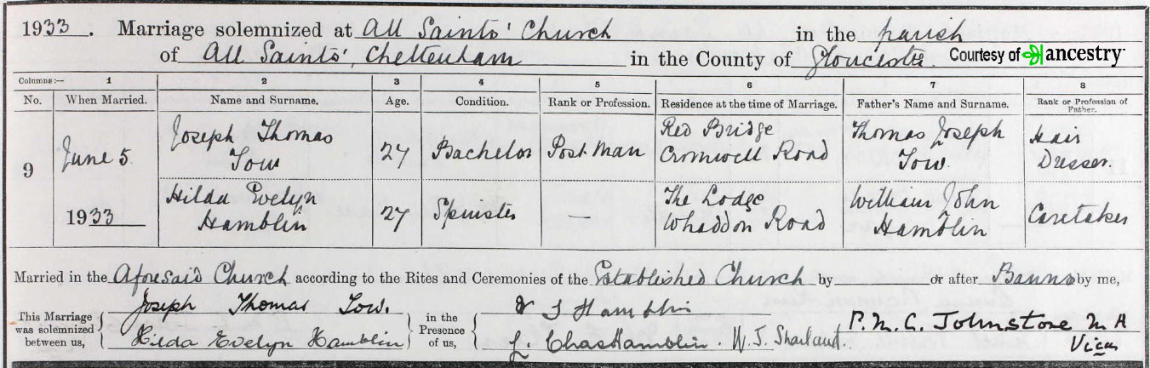 1933. Marriage solemnized at All Saints' Church in the parish
of All Saints', Cheltenham in the County of Gloucester. Courtesy of ancestry
Columns:— 1 2 3 4 5 6 7 8
No. When Married. Name and Surname. Age. Condition. Rank or Profession. Residence at the time of Marriage. Father's Name and Surname. Rank or Profession of Father.
9 June 5 Joseph Thomas Tow 27 Bachelor Post Man Red Bridge Cromwell Road Thomas Joseph Tow. Hair Dresser.
1933 Hilda Evelyn Hamblin 27 Spinster — The Lodge Whaddon Road William John Hamblin Caretaker
Married in the Aforesaid Church according to the Rites and Ceremonies of the Established Church by or after Banns by me,
This Marriage was solemnized between us, Joseph Thomas Tow. Hilda Evelyn Hamblin in the Presence of us, J Hamblin Hamblin. W. J. P. M. C. Johnstone M A Vicar